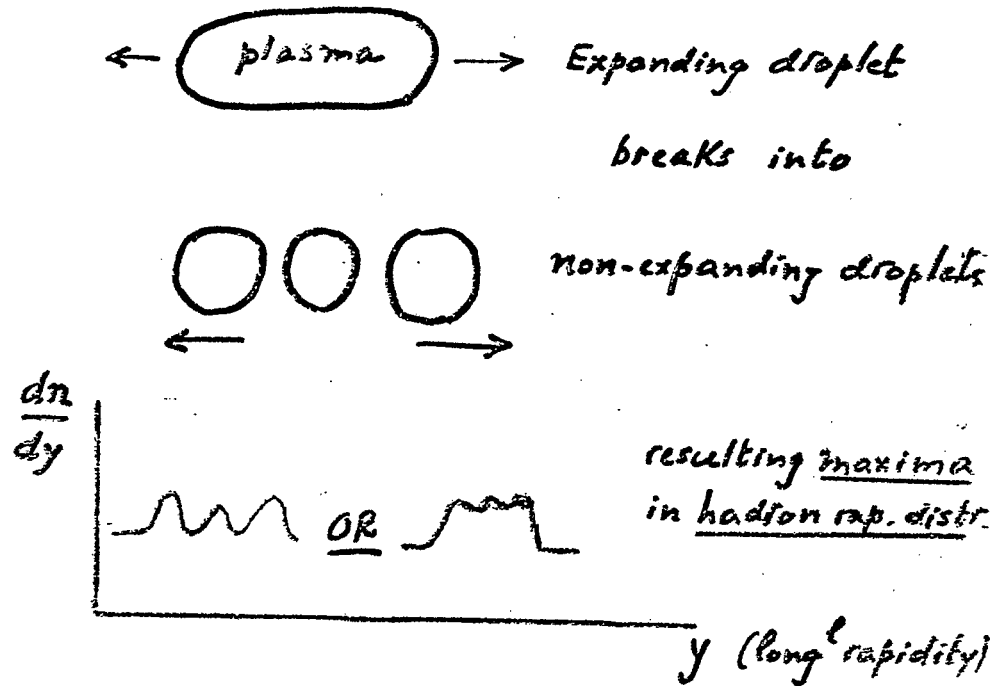 plasma Expanding droplet
breaks into
non-expanding droplets
dn
dy
resulting maxima
in hadron rap. distr.
OR
y (long^l rapidity)